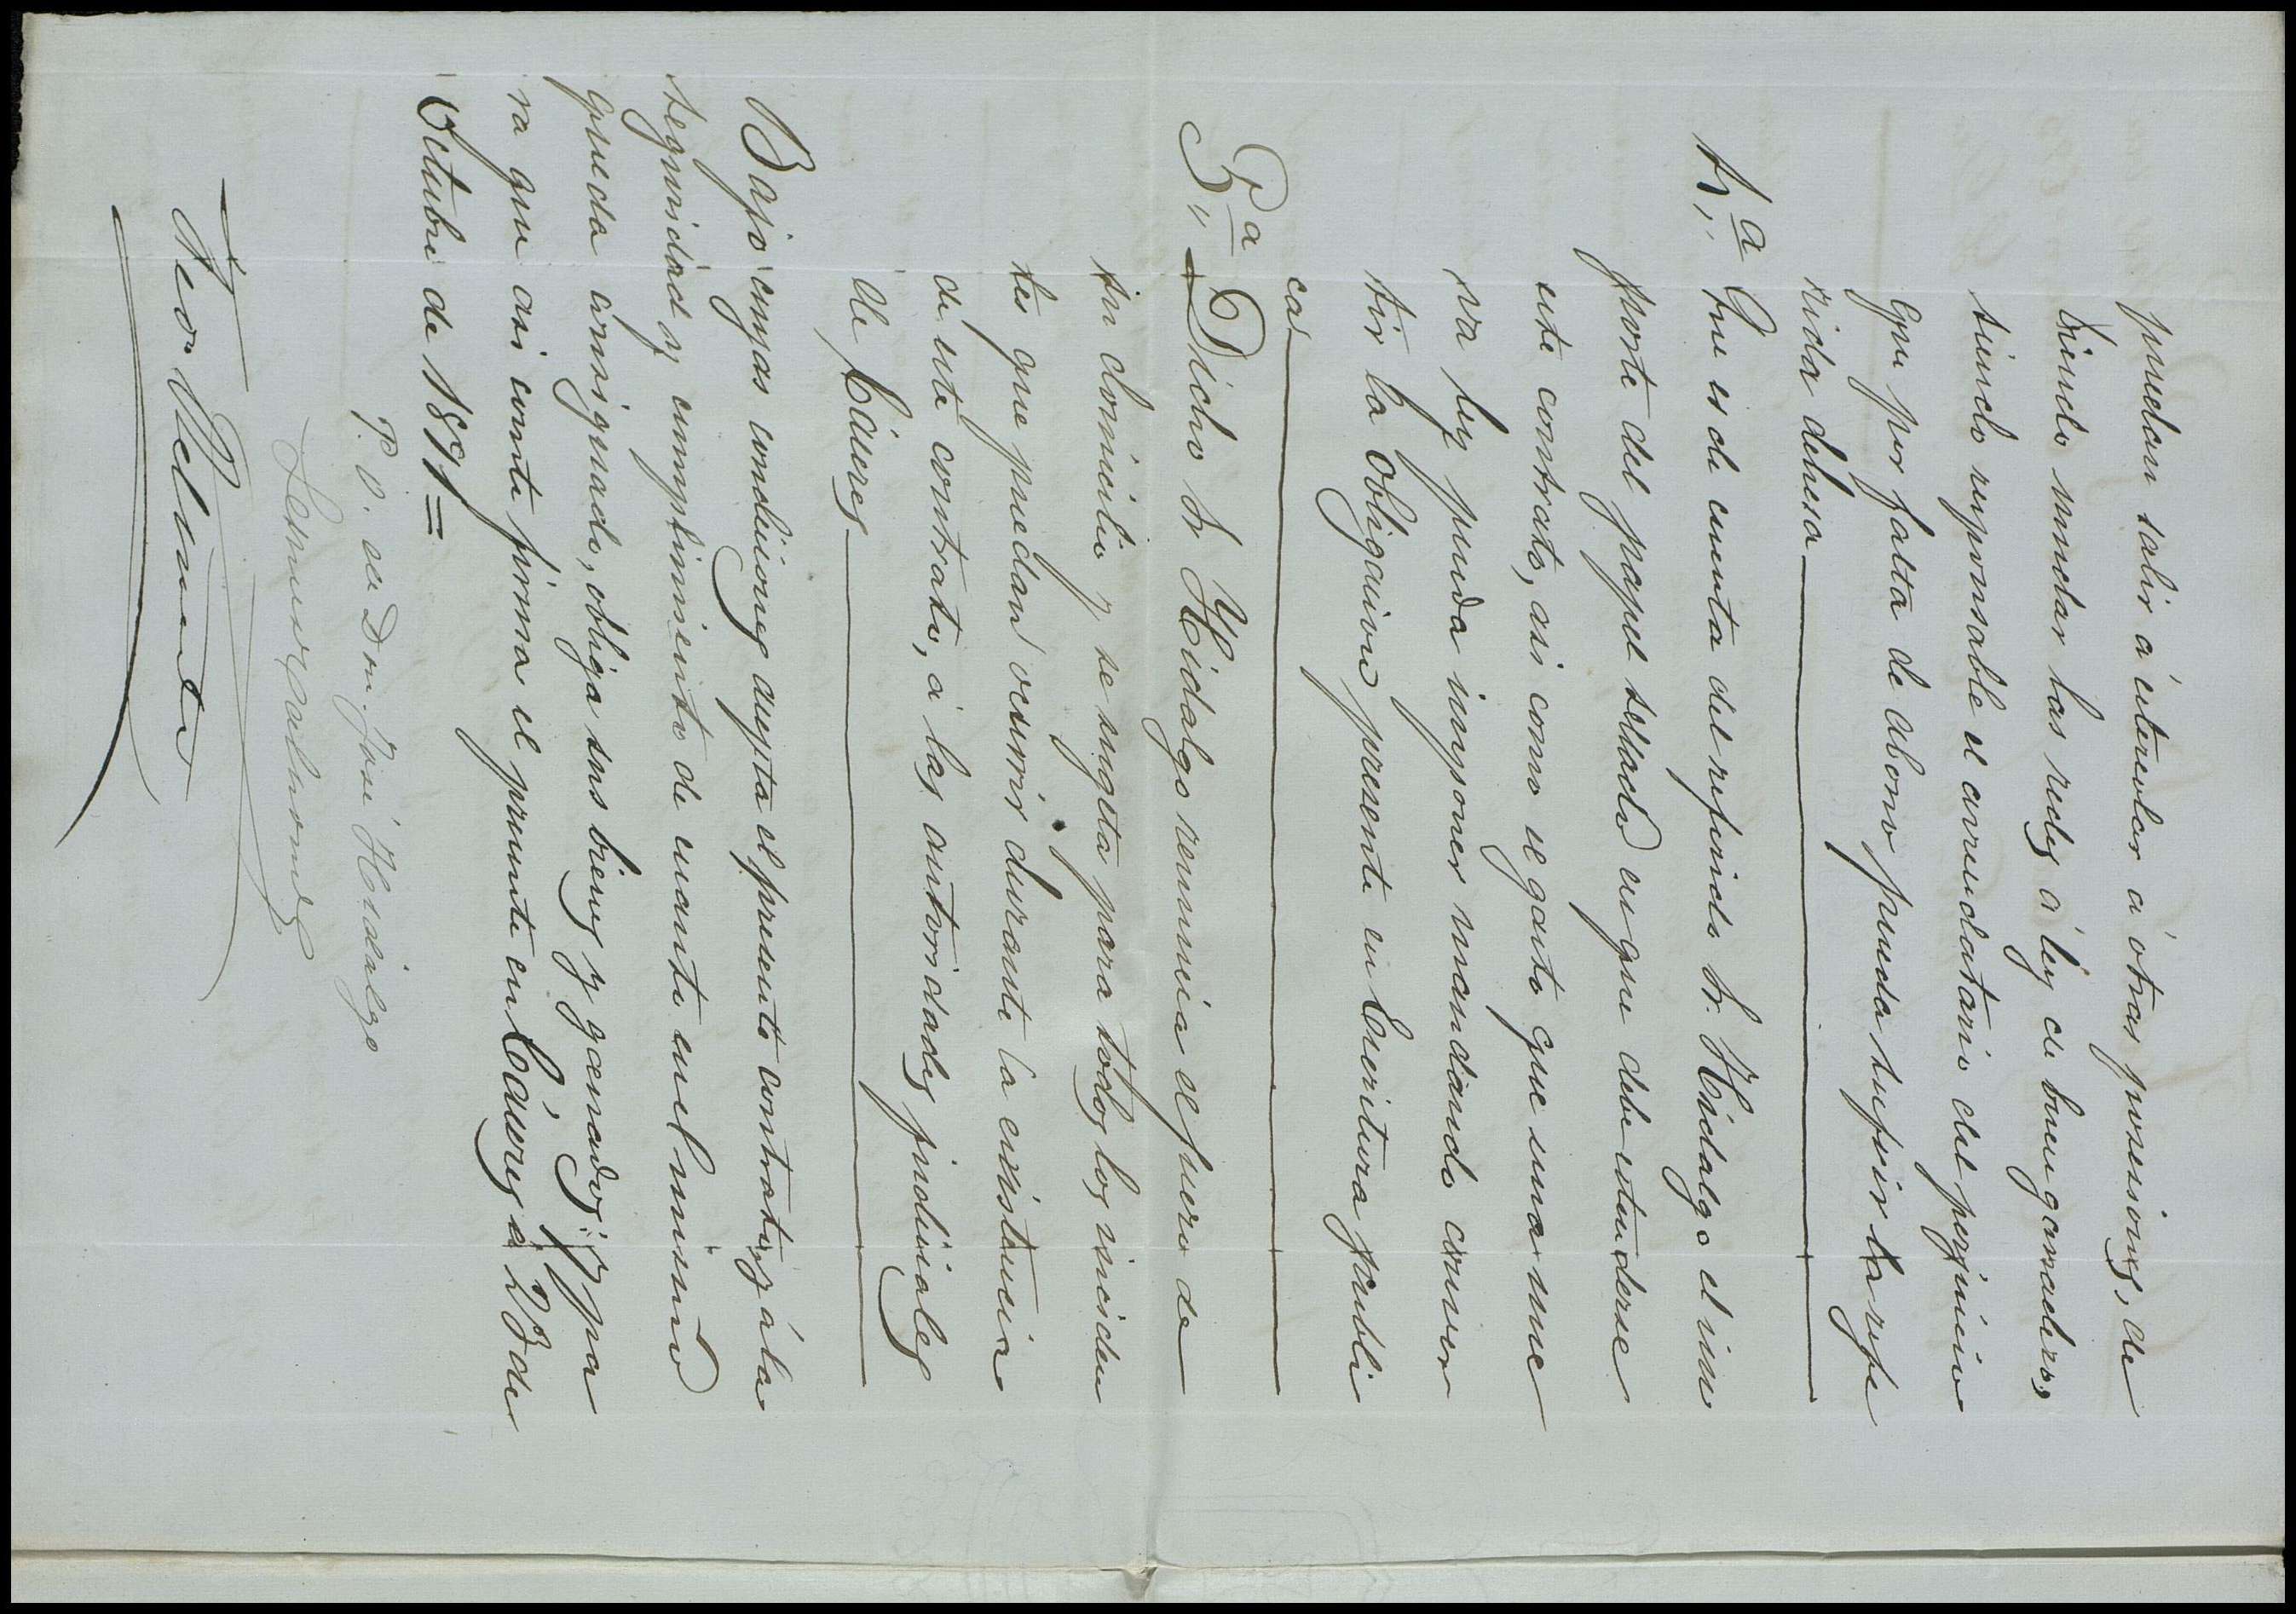 puedan salir á estercolar á otras posesiones, de
biendo mudar las redes á ley de buen ganadero,
siendo responsable el arrendatario del perjuicio
que por falta de abono pueda sufrir la refe
rida dehesa
4,,ª Que es de cuenta del referido Sr. Hidalgo el im
porte del papel sellado en que debe estenderse
este contrato, asi como el gasto que una nue
va ley pueda imponer mandando conver
tir la obligacion presente en Escritura publi
ca
5,,ª Dicho Sr Hidalgo renuncia el fuero de
su domicilio y se sugeta para todos los inciden
tes que puedan ocurrir durante la existencia
de este contrato, á las autoridades judiciales
de Cáceres
Bajo cuyas condiciones acepta el presente contrato, y á la
seguridad y cumplimiento de cuanto en el mismo
queda consignado, obliga sus bienes y ganados; y pa
ra que asi conste firma el presente en Cáceres á 23 de
Octubre de 1891=
P. O. de Don José Hidalgo